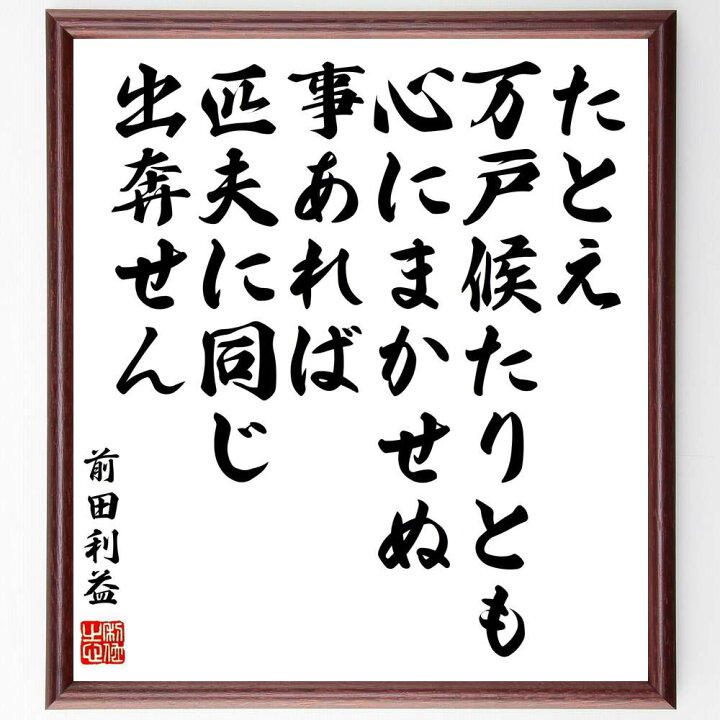 たとえ
万戸候たりとも
心にまかせぬ
事あれば
匹夫に同じ
出奔せん
前田利益